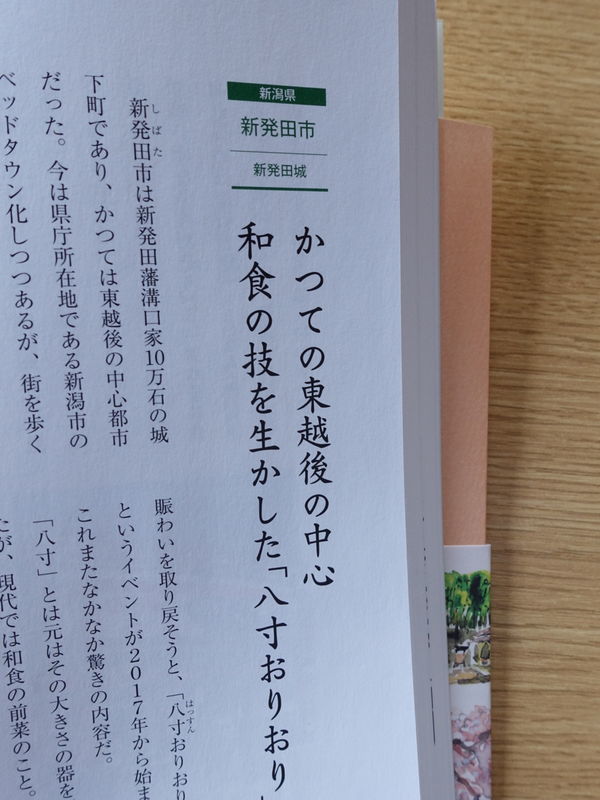 新潟県
新発田市
新発田城
かつての東越後の中心
和食の技を生かした「八寸おりおり」
新発田市は新発田藩溝口家10万石の城
しばた
下町であり、かつては東越後の中心都市
だった。今は県庁所在地である新潟市の
ベッドタウン化しつつあるが、街を歩く
賑わいを取り戻そうと、「八寸おりおり
はっすん
というイベントが2017年から始ま
これまたなかなか驚きの内容だ。
「八寸」とは元はその大きさの器を
たが、現代では和食の前菜のこと。